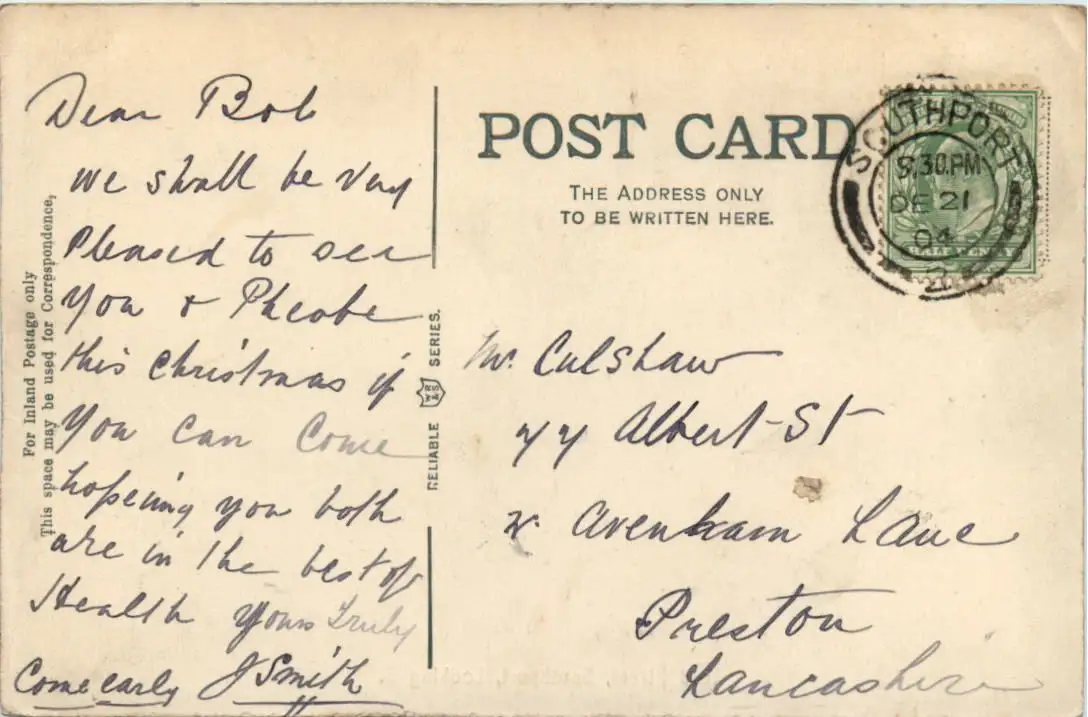 Dear Bob
we shall be very
Pleased to see
You & Pheobe
this christmas if
You can come
hopeing you both
are in the best of
Health Yours Truly
Come early J Smith
For Inland Postage only
This space may be used for Correspondence,
RELIABLE SERIES.
POST CARD
THE ADDRESS ONLY
TO BE WRITTEN HERE.
SOUTHPORT
9.30PM
DE 21
04
2
Mr. Culshaw
77 Albert St
Avenham Lane
Preston
Lancashire